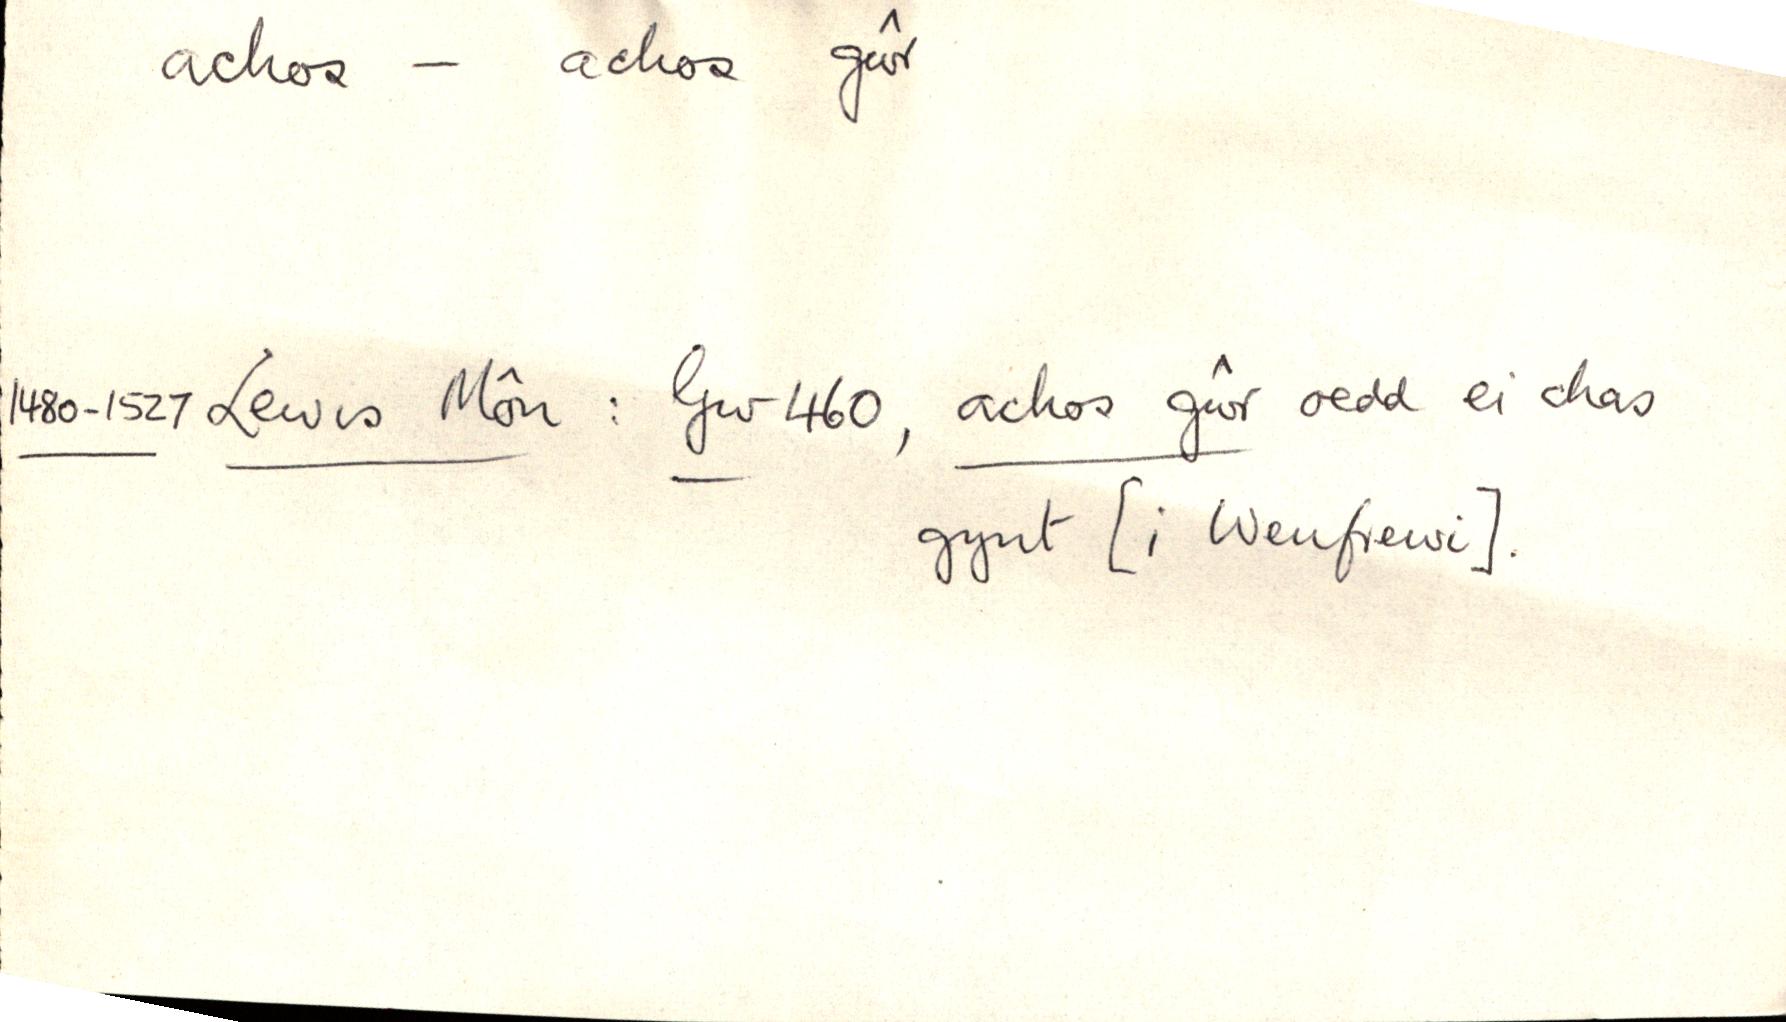 achos – achos gŵr
1480-1527 Lewis Môn : Gw 460, achos gŵr oedd ei chas
gynt [i Wenfrewi].